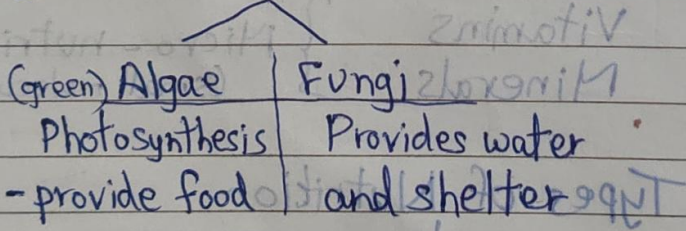 (green) Algae | Fungi
Photosynthesis | Provides water
- provide food | and shelter